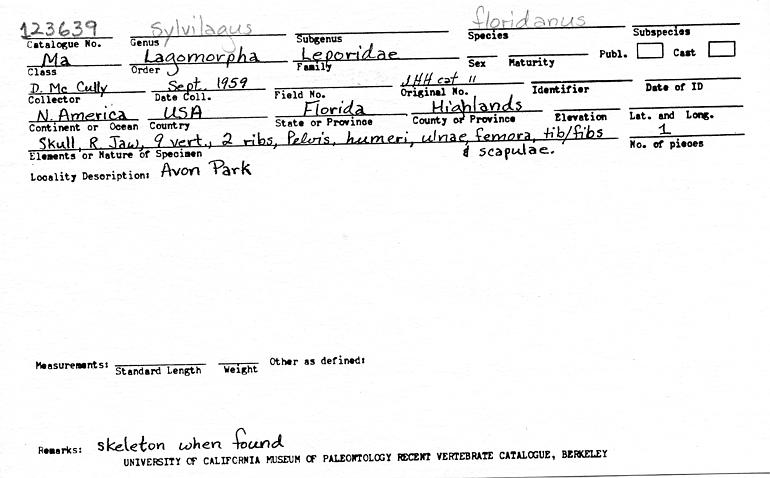 123639 Sylvilagus floridanus
Catalogue No. Genus Subgenus Species Subspecies
Ma Lagomorpha Leporidae Publ. Cast
Class Order Family Sex Maturity
D. Mc Cully Sept. 1959 JHH cat 11
Collector Date Coll. Field No. Original No. Identifier Date of ID
N. America USA Florida Highlands
Continent or Ocean Country State or Province County or Province Elevation Lat. and Long.
Skull, R Jaw, 9 vert., 2 ribs, Pelvis, humeri, ulnae, femora, tib/fibs 1
& scapulae.
Elements or Nature of Specimen No. of pieces
Locality Description: Avon Park
Measurements: Standard Length Weight Other as defined:
Remarks: skeleton when found
UNIVERSITY OF CALIFORNIA MUSEUM OF PALEONTOLOGY RECENT VERTEBRATE CATALOGUE, BERKELEY